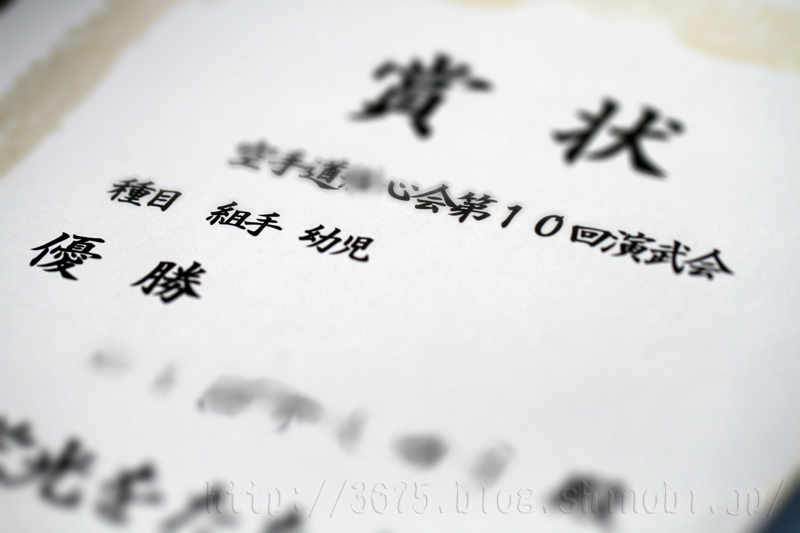 賞状
空手道 心会第１０回演武会
種目 組手 幼児
優勝
殿
光をた
http://3675.blog.shinobi.jp/